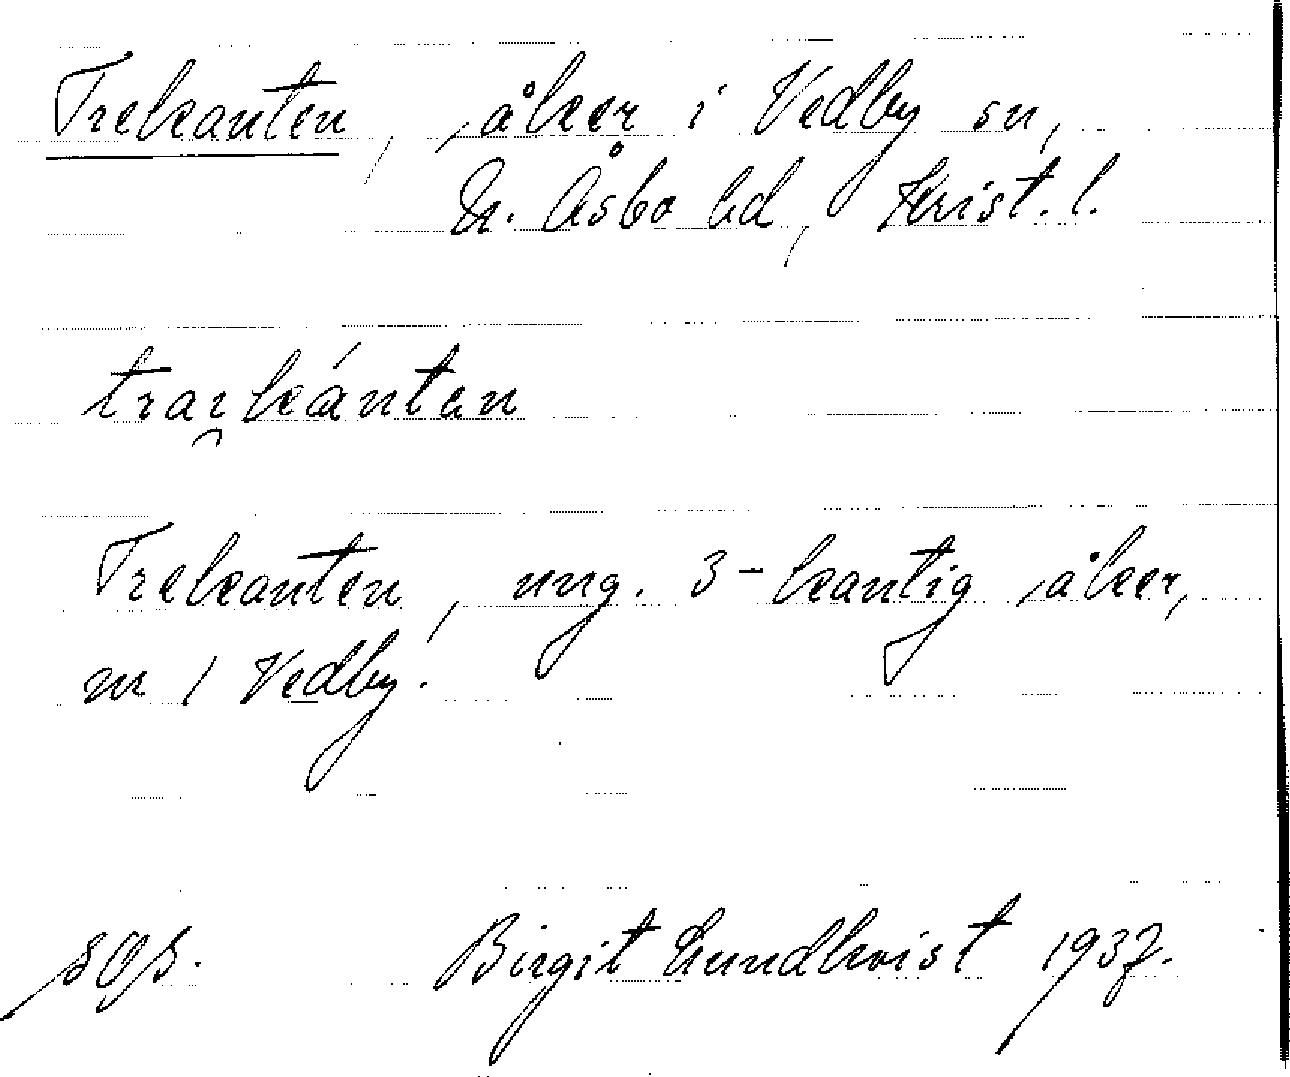 Trekanten, åker i Vedby sn,
N. Åsbo hd, Krist. l.
Trekanten, ung. 3-kantig åker,
nr 1 Vedby.
Birgit Lundkvist 1937.